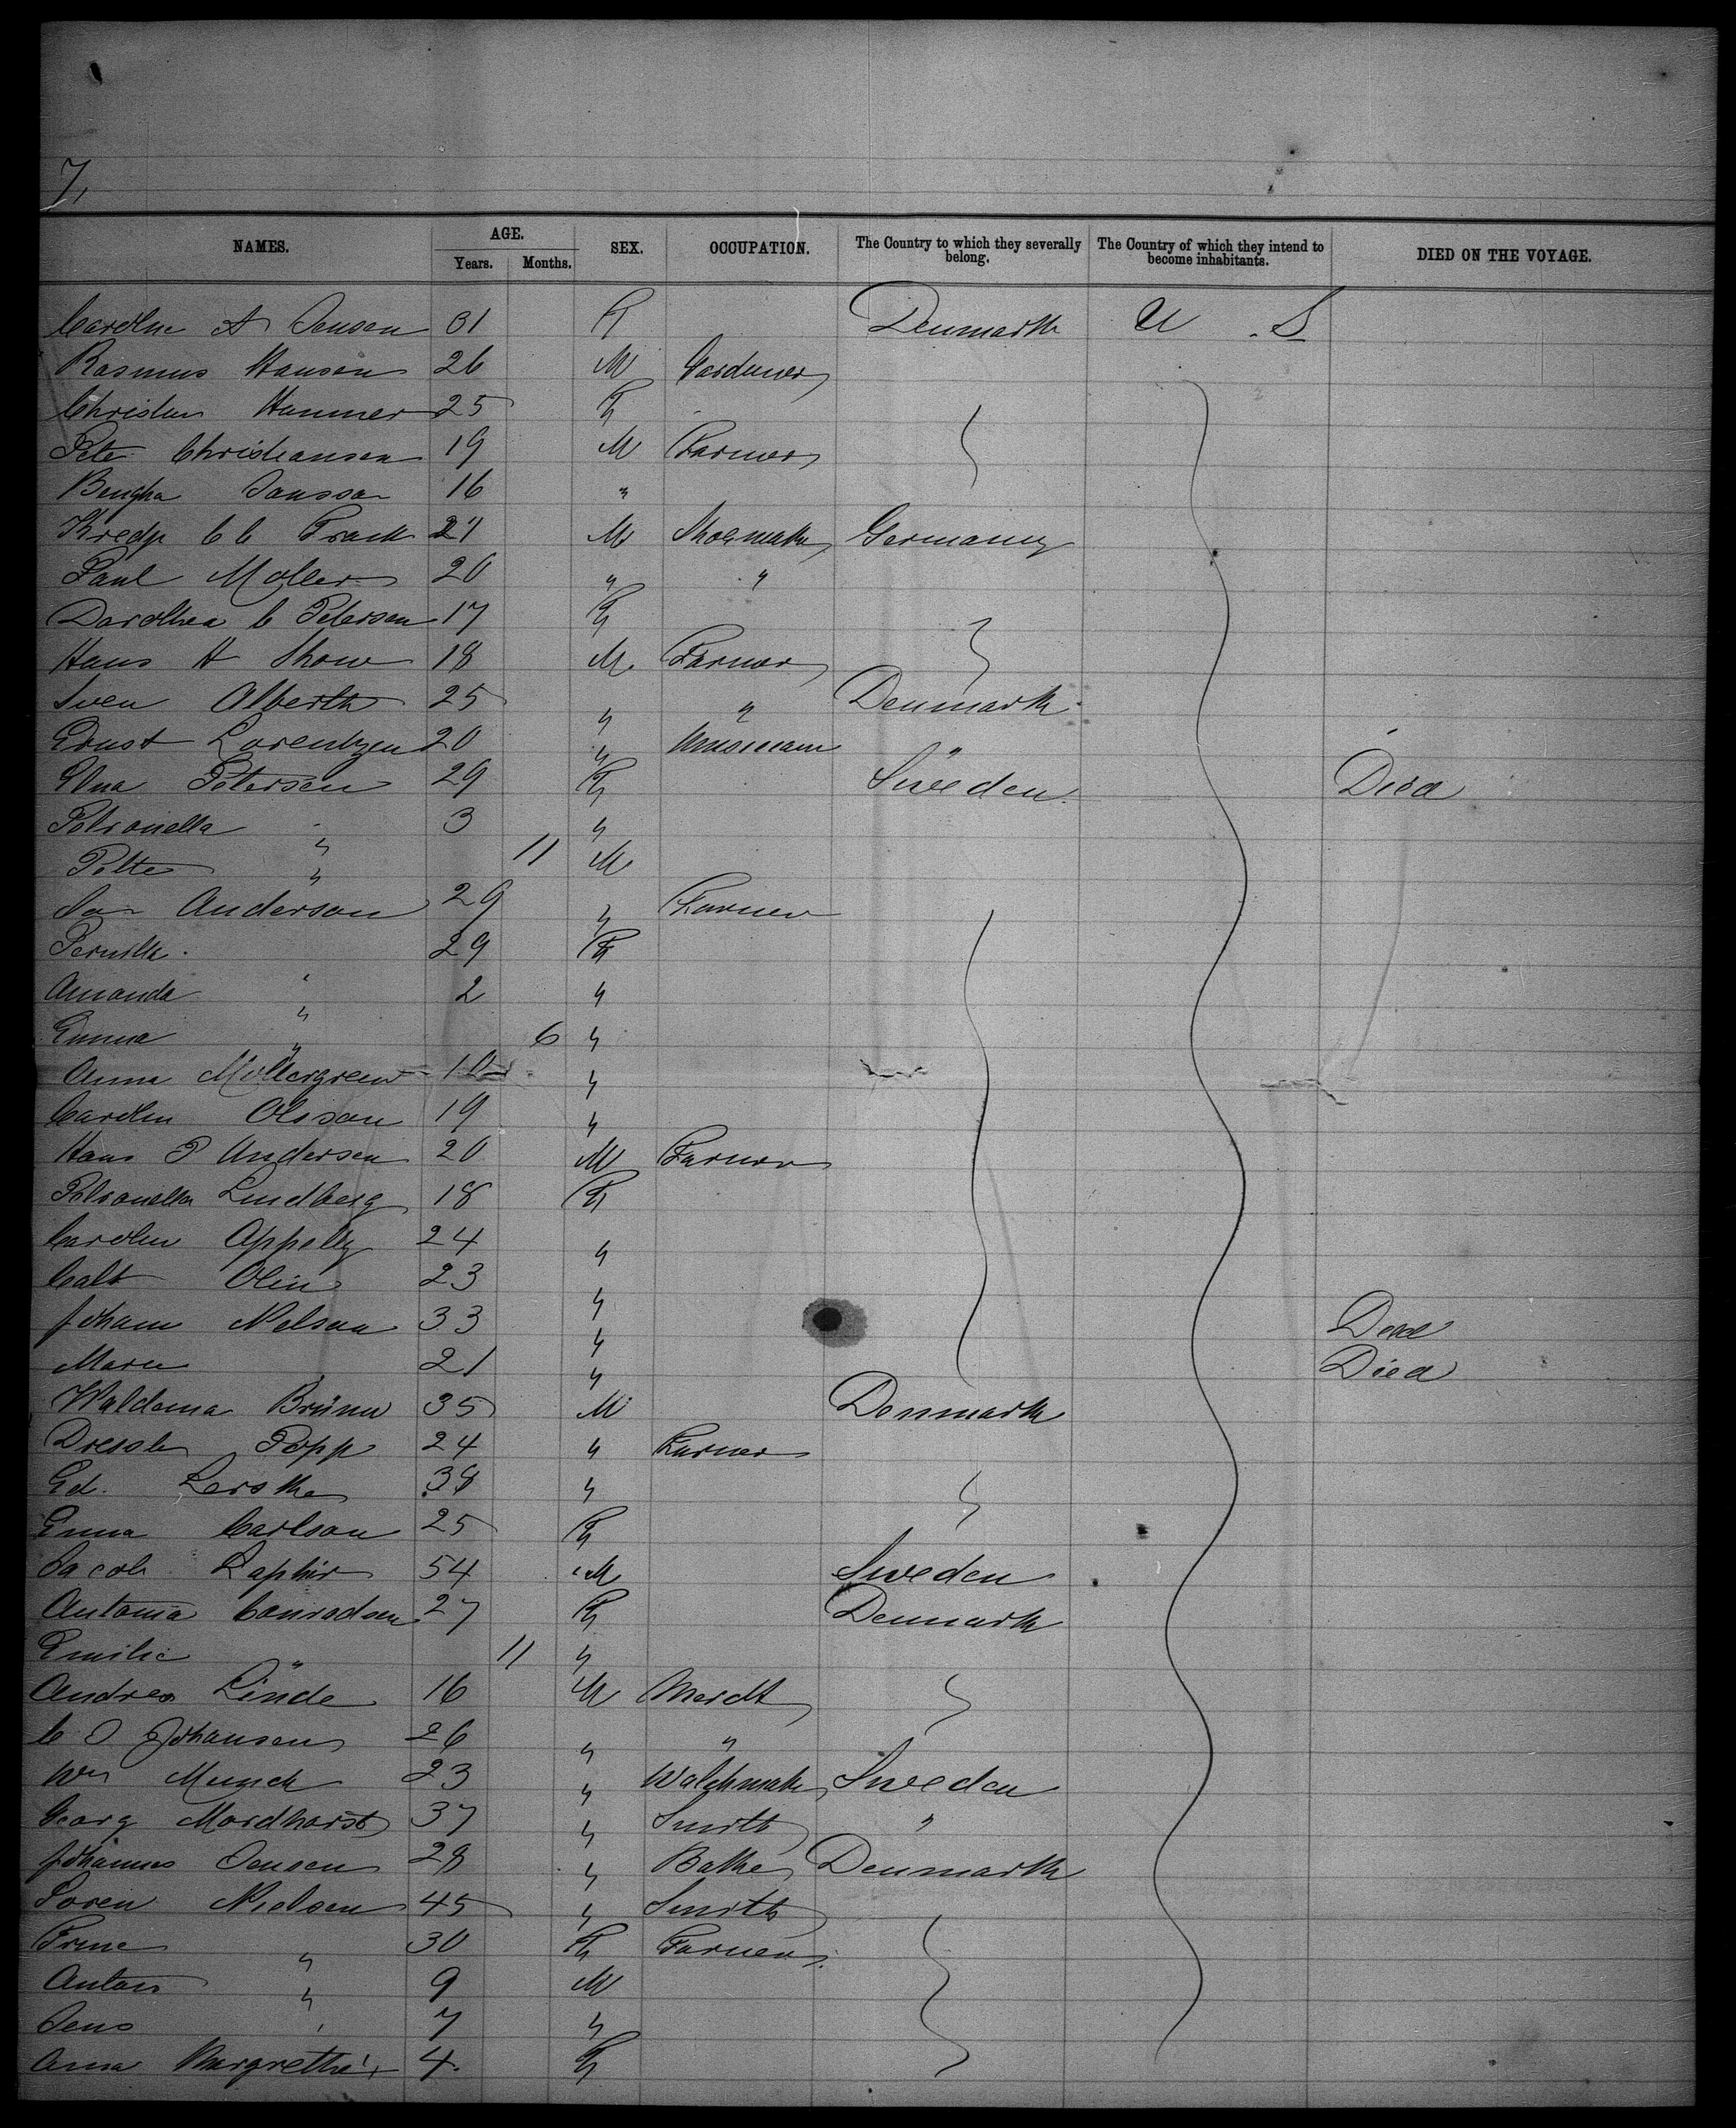 7,
NAMES. AGE. Years. Months. SEX. OCCUPATION. The Country to which they severally belong. The Country of which they intend to become inhabitants. DIED ON THE VOYAGE.
Carolne A Jensen 31 F Denmark U . S
Rasmus Hansen 26 M Gardener
Christian Hammer 25 F
Peter Christiansen 19 M Farmer
Bengha Jansson 16 "
C C Frank M Shoemaker Germany
Paul Moller 20 " "
Dorothea C Petersen 17 F
Hans H Show 18 M. Farmer
Sven Alberth 25 " " Denmark
Ernst Lorentzen 20 " Musician "
Elna Petersen 29 F Sweden Died
Petronella " 3 "
Peter " 11 M
Anderson 29 " Farmer
Pernilla " 29 F
Amanda " 2 "
Emma " 6 "
Anna Möllergreen 10 "
Carolin Olsson 19 "
Hans P Andersen 20 M Farmer
Petronella Lindberg 18 F
Carolin Appelly 24 "
Olin 23 "
Johann Nelson 33 " Died
Marie 21 " Died
Waldema Brünn 35 M Denmark
Popp 24 " Farmer
Ed. 38 "
Emma Carlson 25 F
Jacob Laphir 54 M Sweden
Antonia Conradsen 27 F Denmark
Emilie " 11 "
Andrea Linde 16 M Mercht
C J Johansen 26 " "
Wm Munch 23 " Watchmaker Sweden
Georg Mordhorst 37 " Smith "
Johannes Jensen 28 " Baker Denmark
Soren Nielsen 45 " Smith
Trine " 30 F Farmer
Anton " 9 M
Jens " 7 "
Anna Margrethe " 4. F